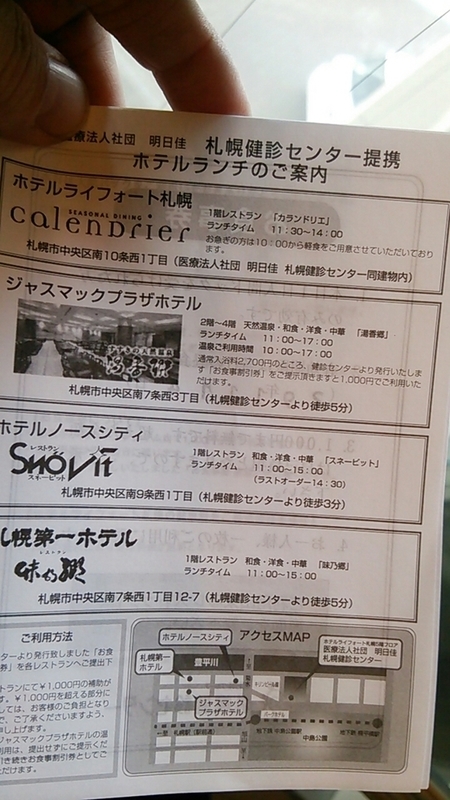 医療法人社団　明日佳　札幌健診センター提携
ホテルランチのご案内
ホテルライフォート札幌
SEASONAL DINING
calenDrier
1階レストラン　「カランドリエ」
ランチタイム　11：30~14：00
お急ぎの方は10：00から軽食をご用意させていただいております。
札幌市中央区南10条西1丁目（医療法人社団　明日佳　札幌健診センター同建物内）
ジャスマックプラザホテル
すすきの天然温泉
湯香郷
2階~4階　天然温泉・和食・洋食・中華　「湯香郷」
ランチタイム　11：00~17：00
温泉ご利用時間　10：00~17：00
通常入浴料2,700円のところ、健診センターより発行いたします「お食事割引券」をご提示頂きますと1,000円でご利用いただけます。
札幌市中央区南7条西3丁目（札幌健診センターより徒歩5分）
ホテルノースシティ
レストラン
SNOVIT
スネービット
1階レストラン　和食・洋食・中華　「スネービット」
ランチタイム　11：00~15：00
（ラストオーダー14：30）
札幌市中央区南9条西1丁目（札幌健診センターより徒歩3分）
札幌第一ホテル
レストラン
味乃郷
1階レストラン　和食・洋食・中華　「味乃郷」
ランチタイム　11：00~15：00
札幌市中央区南7条西1丁目12-7（札幌健診センターより徒歩5分）
ご利用方法
ターより発行致しました「お食
券」を各レストランへご提出下
ランにて￥1,000円の補助が
す。￥1,000円を超える部分に
しては、お客様のご負担となり
で、ご了承くださいますよう、
申し上げます。
ジャスマックプラザホテルの温
利用は、提出せずにご提示くだ
引き続きお食事割引券としてご
ただけます。
アクセスMAP
ホテルノースシティ
札幌第一ホテル
豊平川
ホテルライフォート札幌5階フロア
医療法人社団　明日佳
札幌健診センター
キリンビール園
ジャスマック
プラザホテル
パークホテル
札幌駅（駅前通）
地下鉄 中島公園駅
中島公園